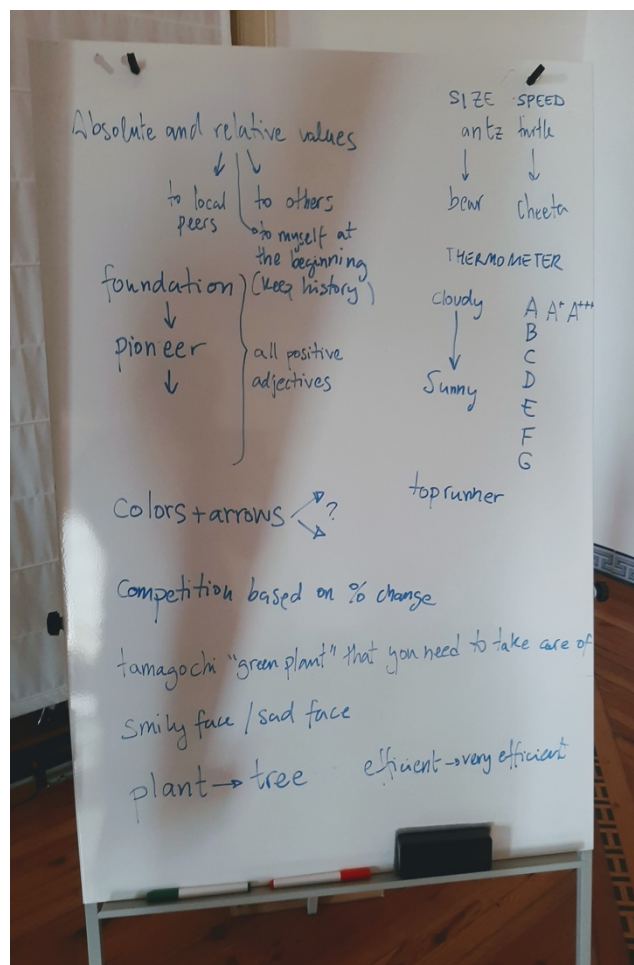 Absolute and relative values
to local peers
to others
to myself at
the beginning
(keep history)
foundation
pioneer
all positive
adjectives
SIZE SPEED
antz turtle
bear Cheeta
THERMOMETER
cloudy
Sunny
A A+ A+++
B
C
D
E
F
G
top runner
Colors + arrows ?
Competition based on % change
tamagochi "green plant" that you need to take care of
Smily face / sad face
plant → tree
efficient → very efficient